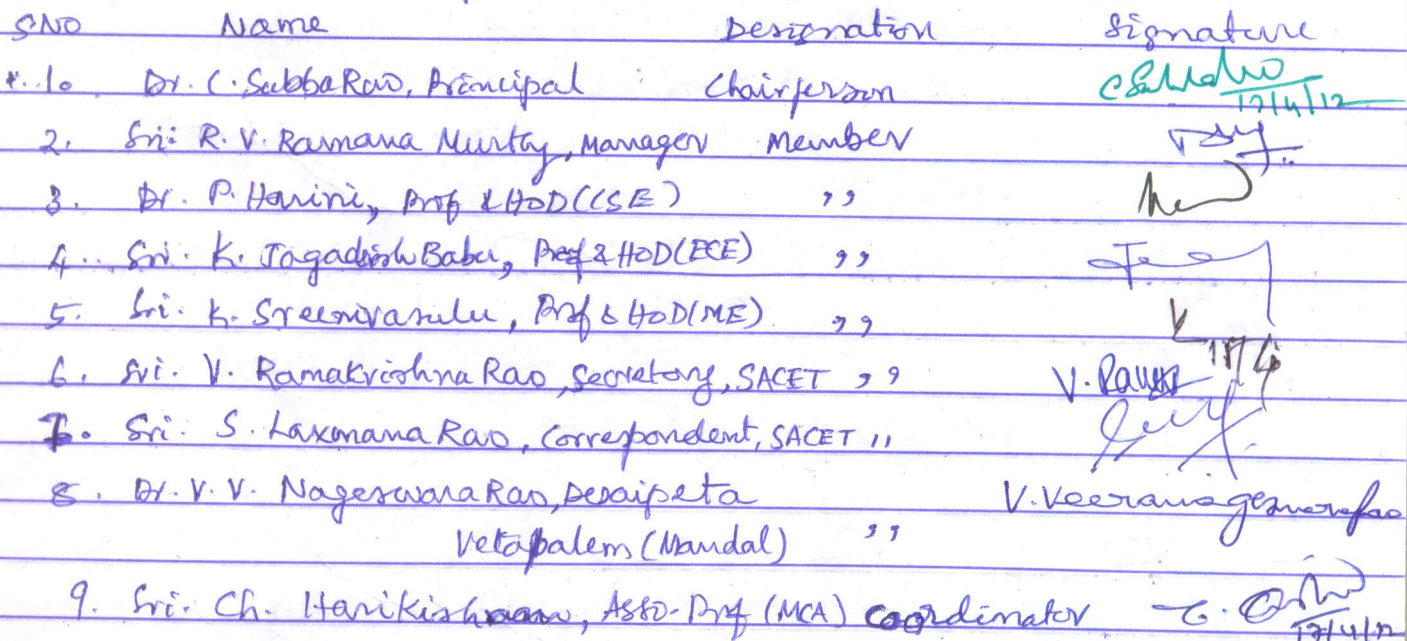 SNO Name Designation Signature
1. Dr. C. SubbaRao, Principal Chairperson CSubbaRao 17/4/12
2. Sri R. V. Ramana Murthy, Manager Member
3. Dr. P. Harini, Prof & HOD (CSE) ,,
4. Sri. K. Jagadish Babu, Prof & HOD (ECE) ,,
5. Sri. K. Sreenivasulu, Prof & HOD (ME) ,,
6. Sri. V. Ramakrishna Rao, Secretary, SACET ,, V. Rama
7. Sri. S. Laxmana Rao, Correspondent, SACET ,,
8. Dr. V. V. Nageswara Rao, Desaipeta V. Veeranageswarao
Vetapalem (Mandal) ,,
9. Sri. Ch. Harikishan, Asso-Prof (MCA) coordinator 17/4/12